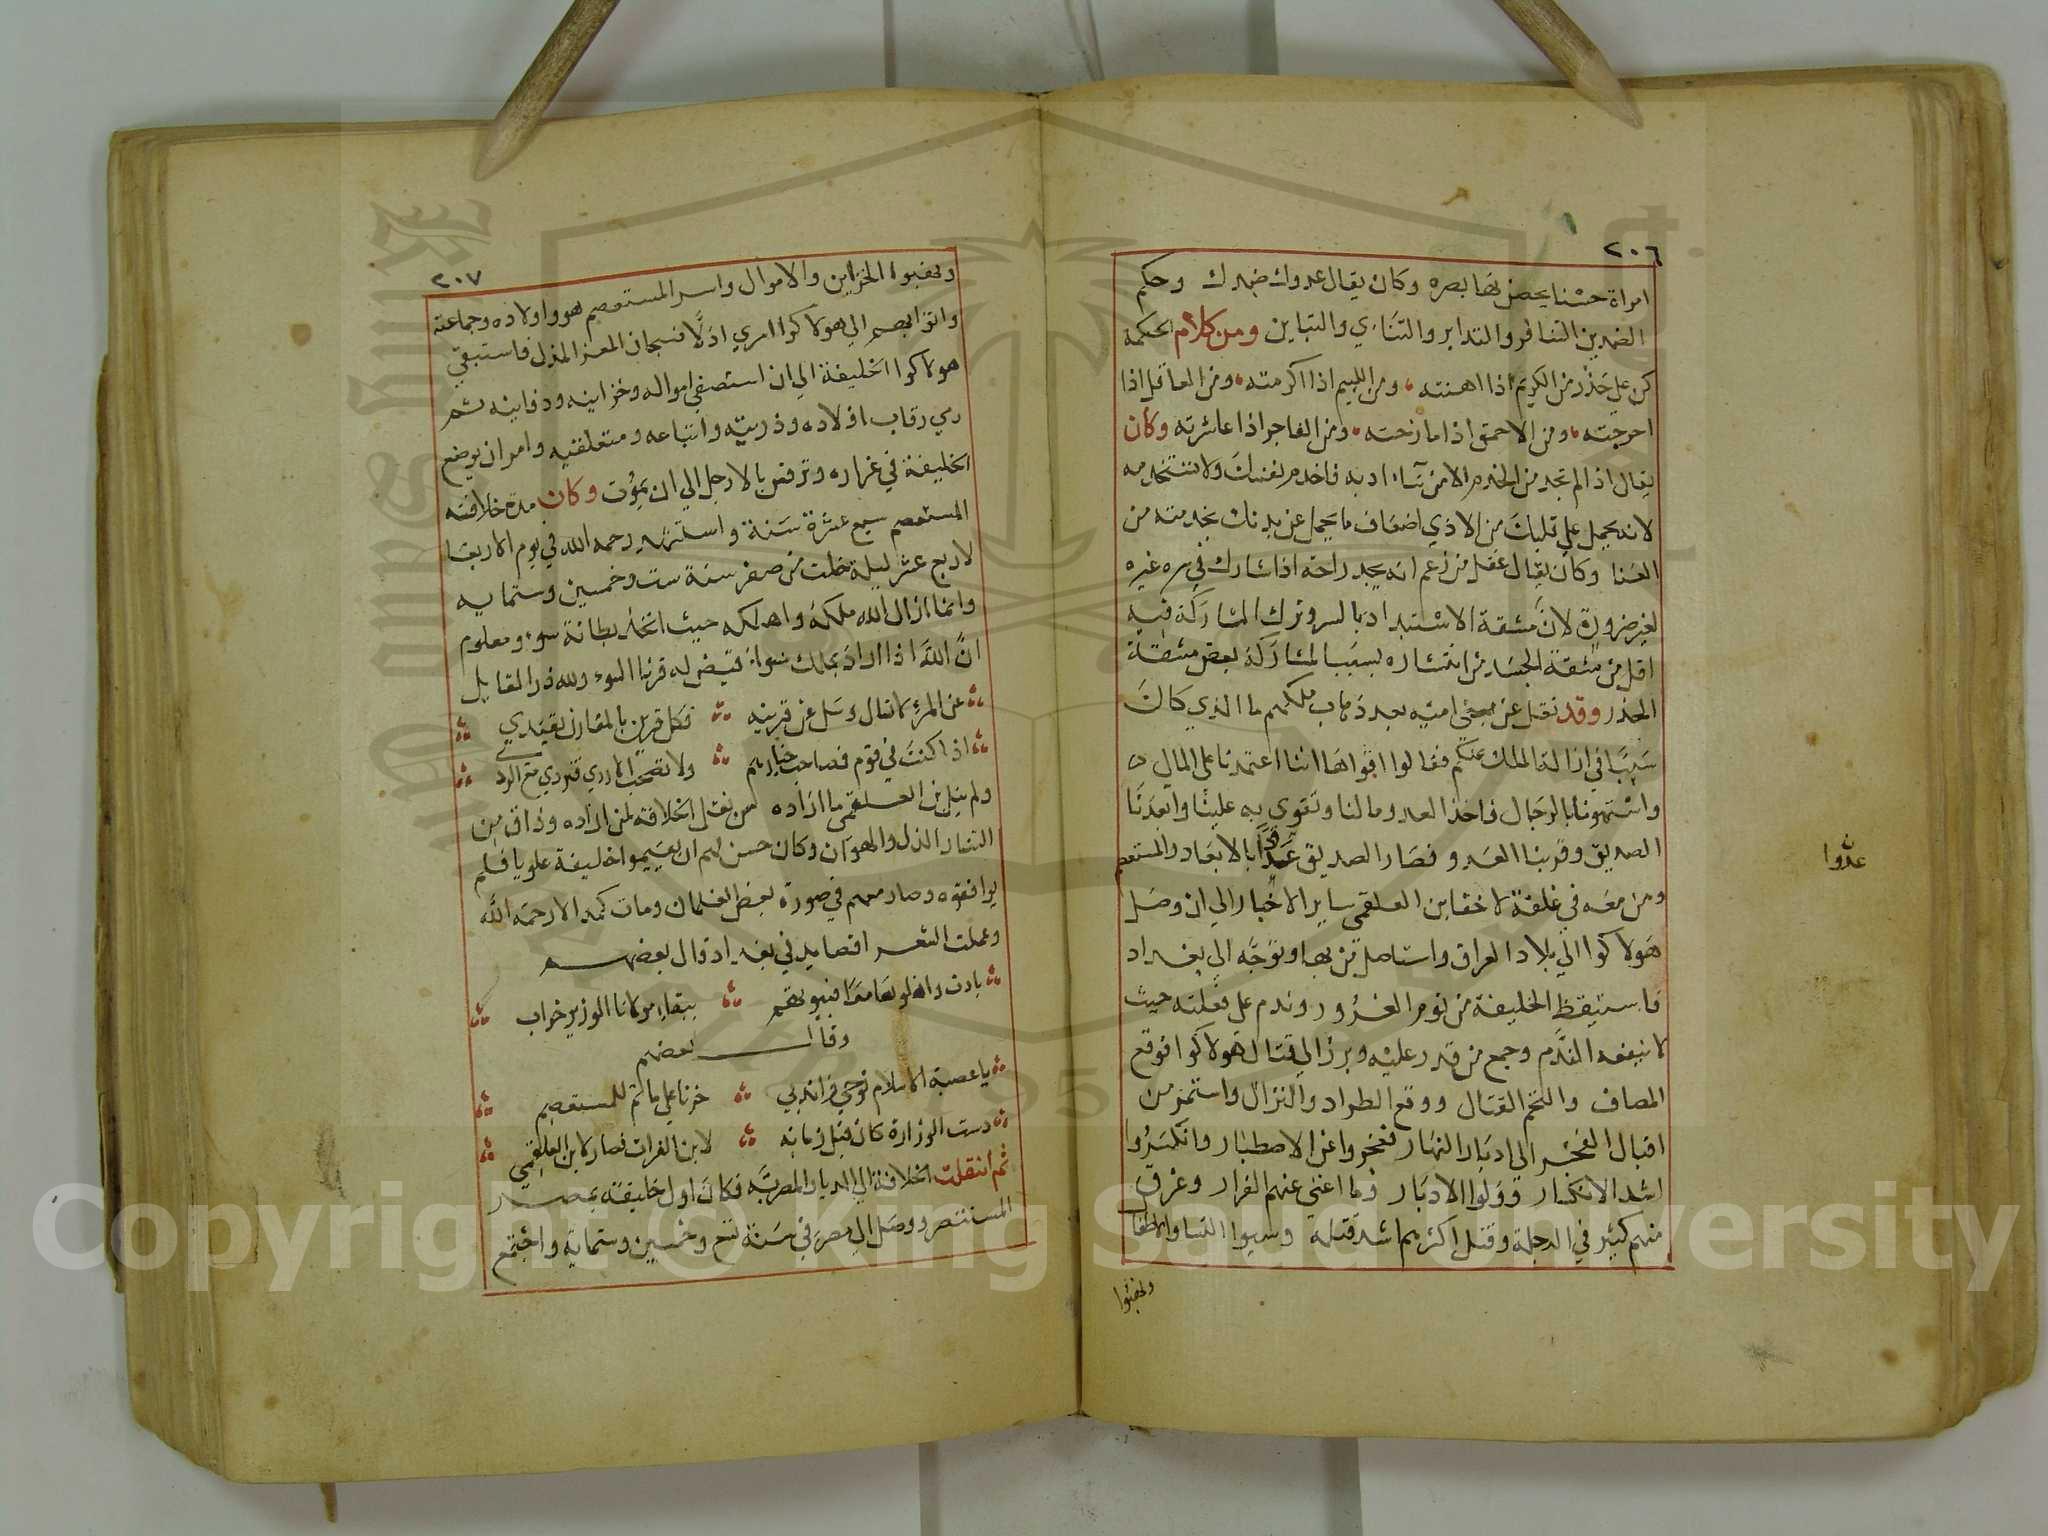 ٢٠٦
امراة حسنا يحصن بها بصره وكان يقال عدوك ضدك وحكم
الضدين التنافر والتدابر والتنائي والتباين ومن كلام الحكمة
كن على حذر من الكريم اذا اهنته ومن اللييم اذا اكرمته ومن العاقل اذا
احرجته ومن الاحمق اذا مازحته ومن الفاجر اذا عاشرته وكان
يقال اذا لم تجد من الخدم الا من اساء ادبه فاخدم نفسك ولا تستخدمه
لانه يحمل على قلبك من الاذي اضعاف ما يحمل عن بدنك بخدمته من
العنا وكان يقال غفل من زعم انه يجد راحة اذا شارك في سره غيره
لغير ضرورة لان مشقة الاستبداد بالسر وترك المشاركة فيه
اقل من مشقة الجسد من انتشاره بسبب المشاركة بعض مشقة
الحذر وقد نقل عن بني امية بعد ذهاب ملكهم ما الذي كان
سببا في ازالة الملك عنكم فقالوا اقواها اننا اعتمدنا على المال
واستهونا بالرجال فاخذ العدو مالنا وتقوي به علينا وابعدنا
الصديق وقربنا العدو فصار الصديق عدوا بالابعاد والمستعصم
عدوا
ومن معه في غلفة لاخفا بن العلقمي ساير الاخبار الي ان وصل
هولاكوا الي بلاد العراق واستاصل من بها وتوجه الى بغداد
فاستيقظ الخليفة من نوم الغرور وندم على فعلته حيث
لا ينفعه الندم وجمع من قدر عليه وبرز الي قتال هولاكوا فوقع
المصاف والتحم القتال ووقع الطراد والنزال واستمر من
اقبال الفجر الى ادبار النهار فعجزوا عن الاصطبار وانكسروا
اشد الانكسار وولوا الادبار وما اغنى عنهم الفرار وغرق
منهم كثير في الدجلة وقتل اكثرهم اشد قتلة وسبوا النسا والاطفال
ونهبوا
٢٠٧
ونهبوا الخزاين والاموال واسر المستعصم هو واولاده وجماعته
واتوا بهم الي هولاكوا اسري اذلا فسبحان المعز المذل فاستبقي
هولاكوا الخليفة الي ان استصفي امواله وخزاينه ودفاينه ثم
رمي رقاب اولاده وذريته واتباعه ومتعلقيه وامر ان يوضع
الخليفة في غراره وترفس بالارجل الي ان يموت وكان مدة خلافته
المستعصم سبع عشرة سنة واستشهد رحمه الله في يوم الاربعا
لاربع عشر ليلة خلت من صفر سنة ست وخمسين وستمايه
وانما ازال الله ملكه واهلكه حيث اتخذ بطانة سوء ومعلوم
ان الله اذا اراد بملك سواء قيض له قرنا السوء ولله در القايل
عن المرء لا تسال وسل عن قرينه فكل قرين بالمقارن يقتدي
اذا كنت في قوم فصاحب خيارهم ولا تصحب الاردي فتردي مع الردي
ولم ينل بن العلقمي ما اراده من نقل الخلافة لمن اراده وذاق من
التتار الذل والهوان وكان حسن لهم ان يقيموا خليفة علويا فلم
يوافقوه وصار معهم في صورة بعض الغلمان ومات كمدا لا رحمه الله
وعملت الشعرا قصايد في بغداد قال بعضهم
بادت واهلوها معا فبيوتهم ببقاء مولانا الوزير خراب
وقال بعضهم
يا عصبة الاسلام نوحي واندبي حزنا على ما تم للمستعصم
دست الوزارة كان قبل زمانه لابن الفرات فصار لابن العلقمي
ثم انتقلت الخلافة الي الديار المصرية فكان اول خليفة بمصر
المستنصر ووصل الي مصر في سنة تسع وخمسين وستماية واجتمع
Copyright © King Saud University